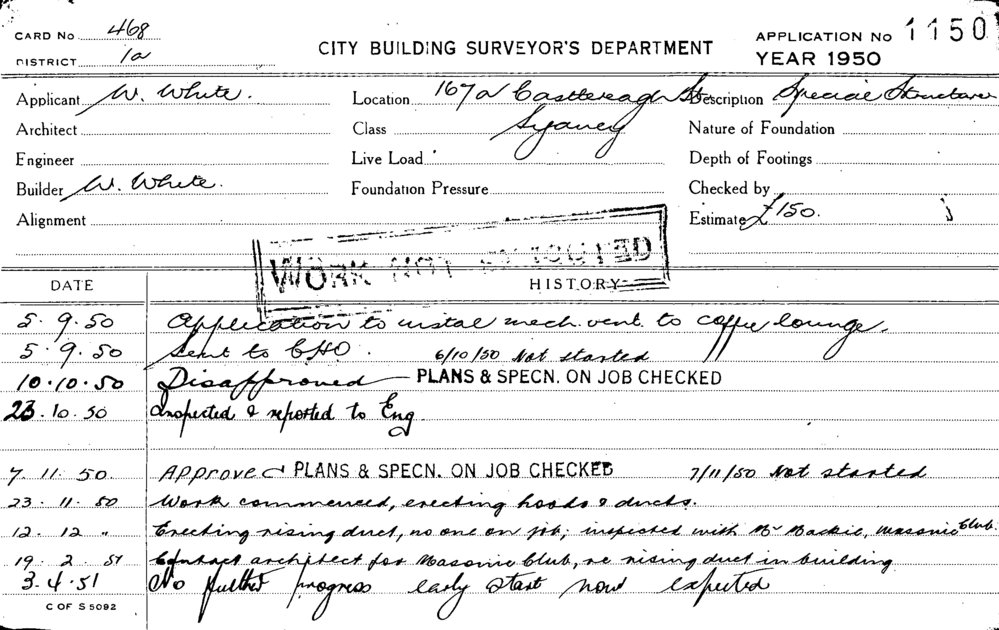 CARD No 468
DISTRICT 1a
CITY BUILDING SURVEYOR'S DEPARTMENT
APPLICATION No 1150
YEAR 1950
Applicant W. White. Location 167a Castlereagh St Description Special Structure
Architect Class Sydney Nature of Foundation
Engineer Live Load Depth of Footings
Builder W. White. Foundation Pressure Checked by
Alignment Estimate £150.
WORK NOT EXECUTED
DATE HISTORY
5.9.50 Application to instal mech. vent. to coffee lounge.
5.9.50 Sent to CHO. 6/10/50 Not started
10.10.50 Disapproved PLANS & SPECN. ON JOB CHECKED
23.10.50 Inspected & reported to Eng
7.11.50. Approved PLANS & SPECN. ON JOB CHECKED 7/11/50 Not started
23.11.50 Work commenced, erecting hoods & ducts.
12.12 " Erecting rising duct, no one on job; inspected with Mr Mackie, Masonic Club.
19.2.51 Contact architect for Masonic Club, re rising duct in building
3.4.51 No further progress early start now expected
C OF S 5092